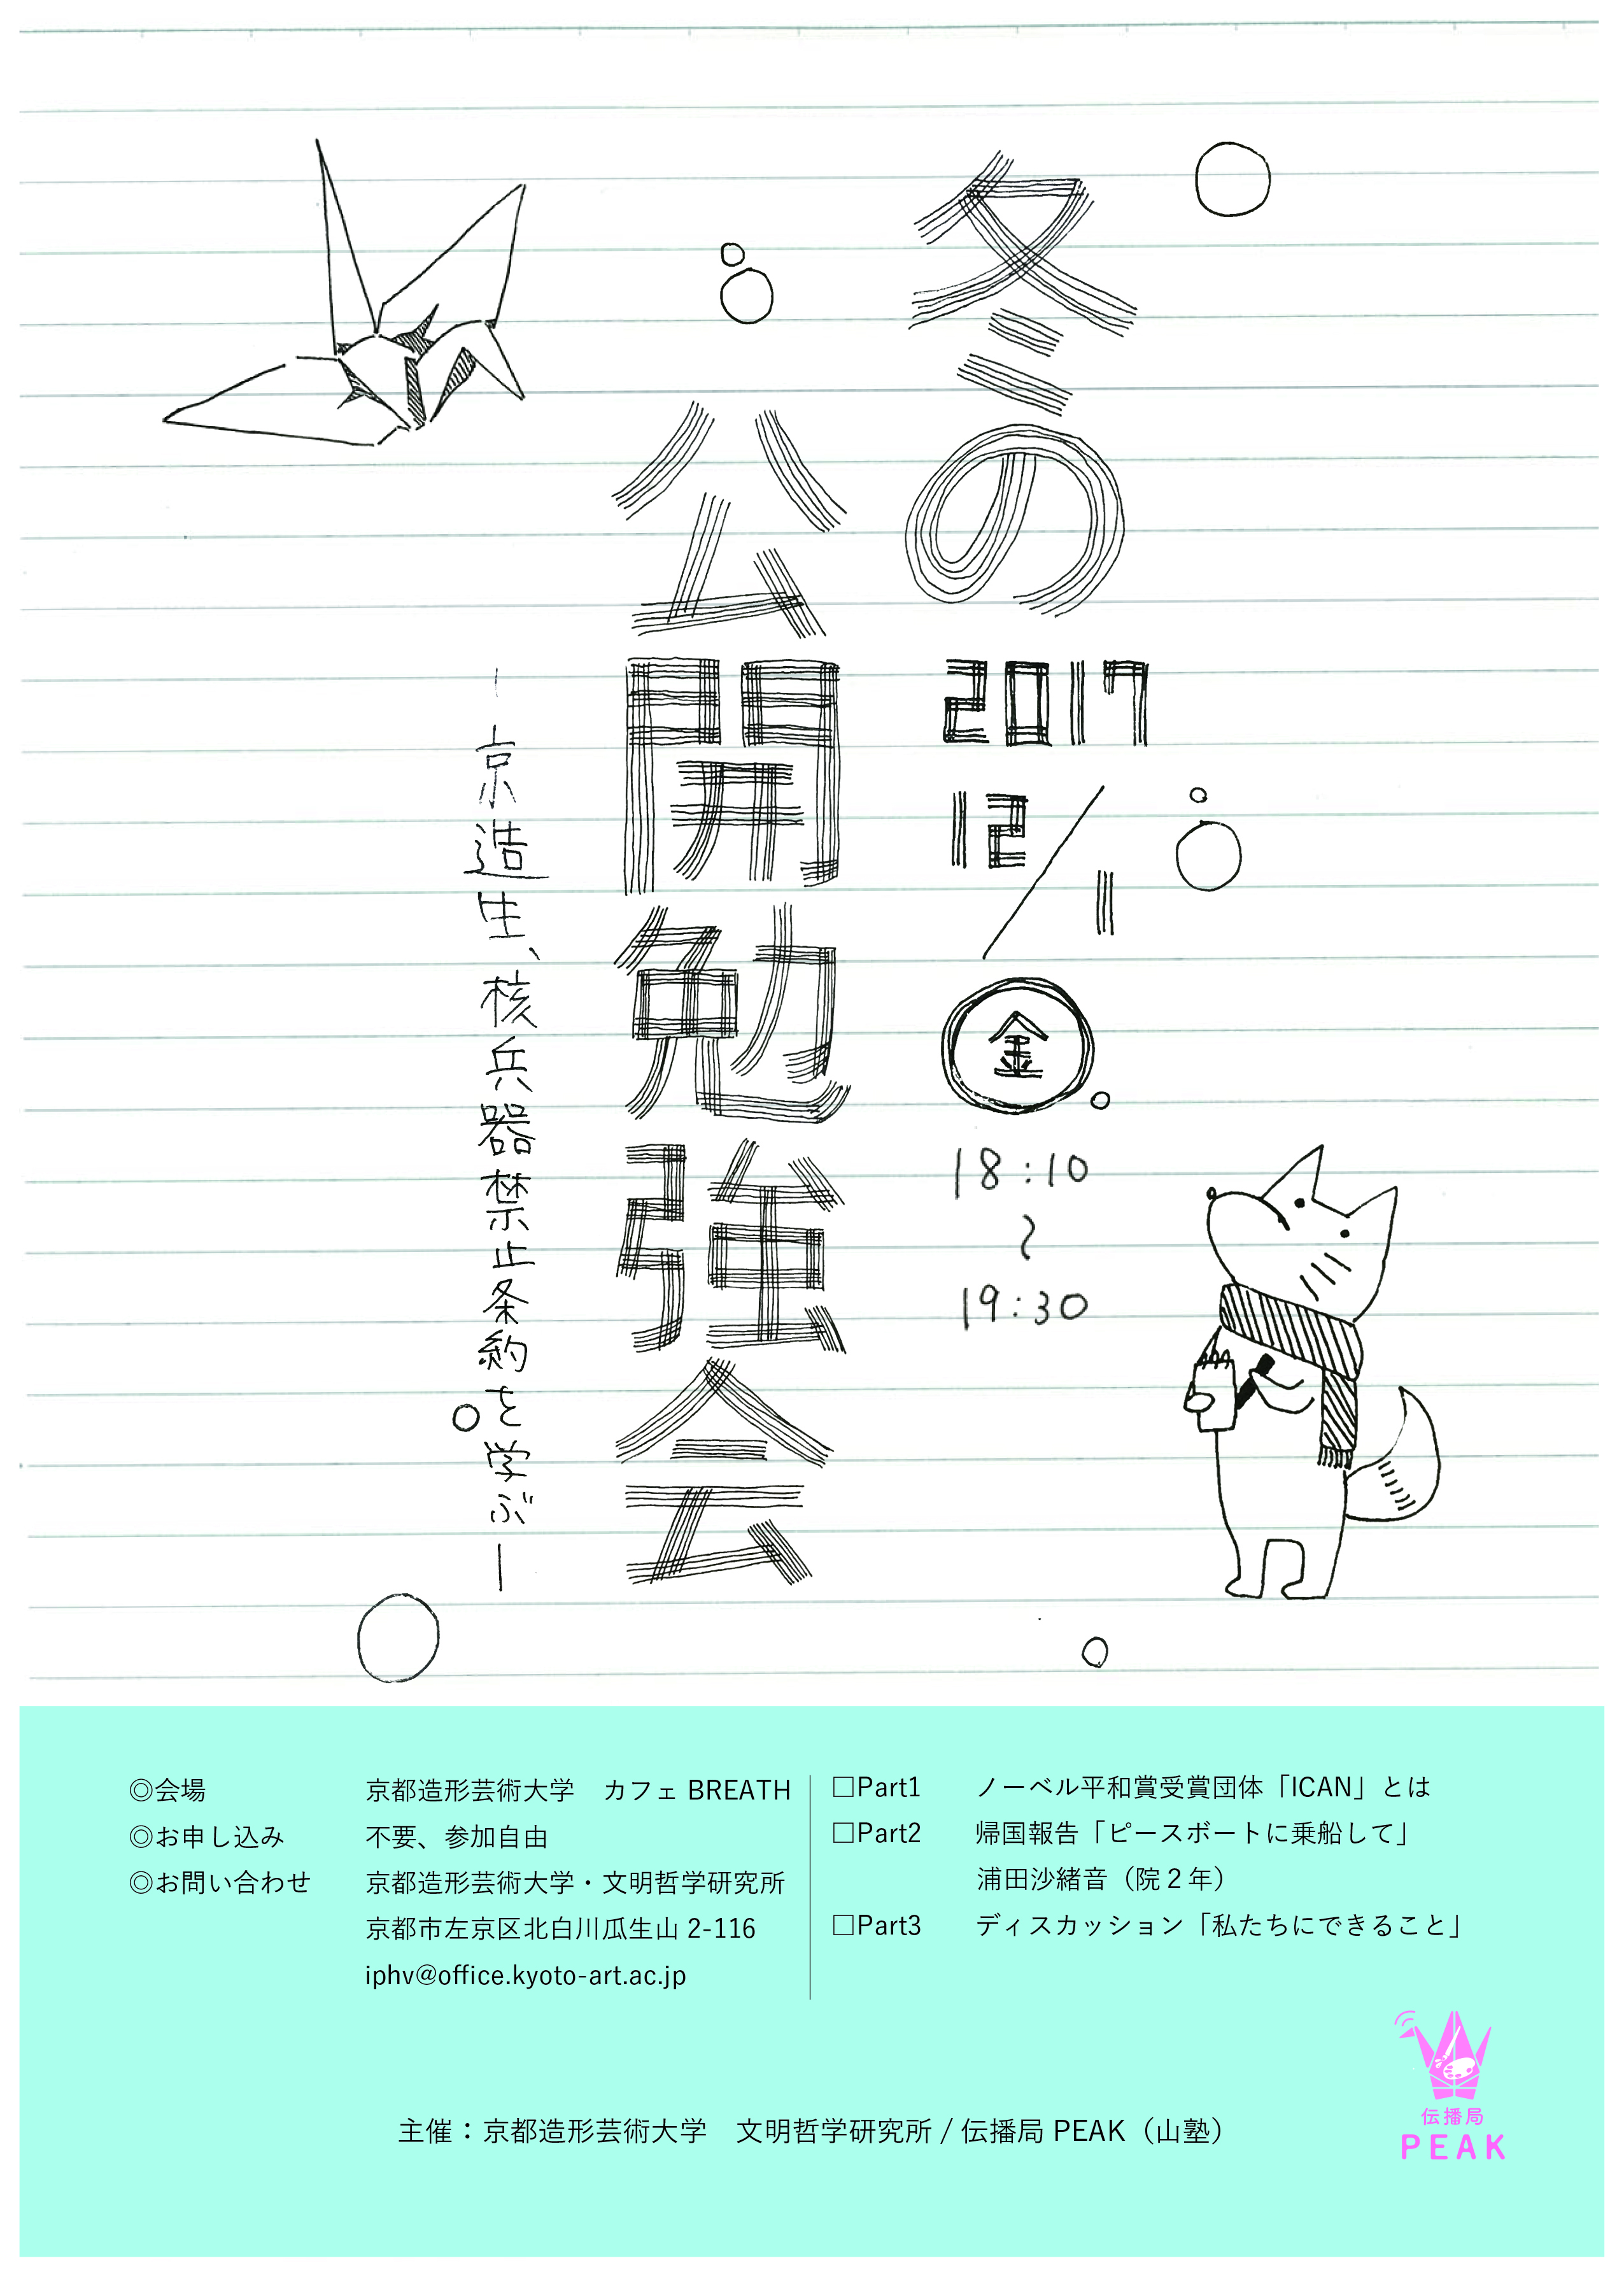 冬の
2017
12/1
金
18:10
〜
19:30
公開勉強会
―京造生、核兵器禁止条約を学ぶ―
◎会場　京都造形芸術大学　カフェ BREATH
◎お申し込み　不要、参加自由
◎お問い合わせ　京都造形芸術大学・文明哲学研究所
京都市左京区北白川瓜生山 2-116
iphv@office.kyoto-art.ac.jp
□Part1　ノーベル平和賞受賞団体「ICAN」とは
□Part2　帰国報告「ピースボートに乗船して」
浦田沙緒音（院２年）
□Part3　ディスカッション「私たちにできること」
主催：京都造形芸術大学　文明哲学研究所 / 伝播局 PEAK（山塾）
伝播局
PEAK